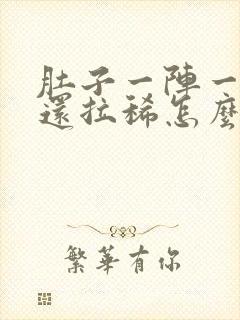 肚子一陣一
還拉稀怎麼
繁華有你